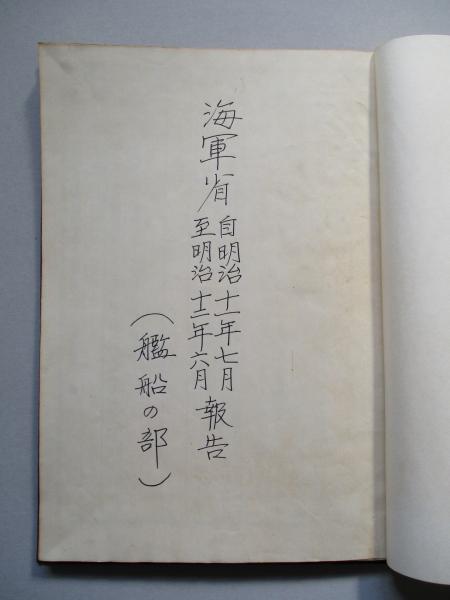 海軍省 自明治十一年七月 至明治十二年六月 報告
(艦船の部)